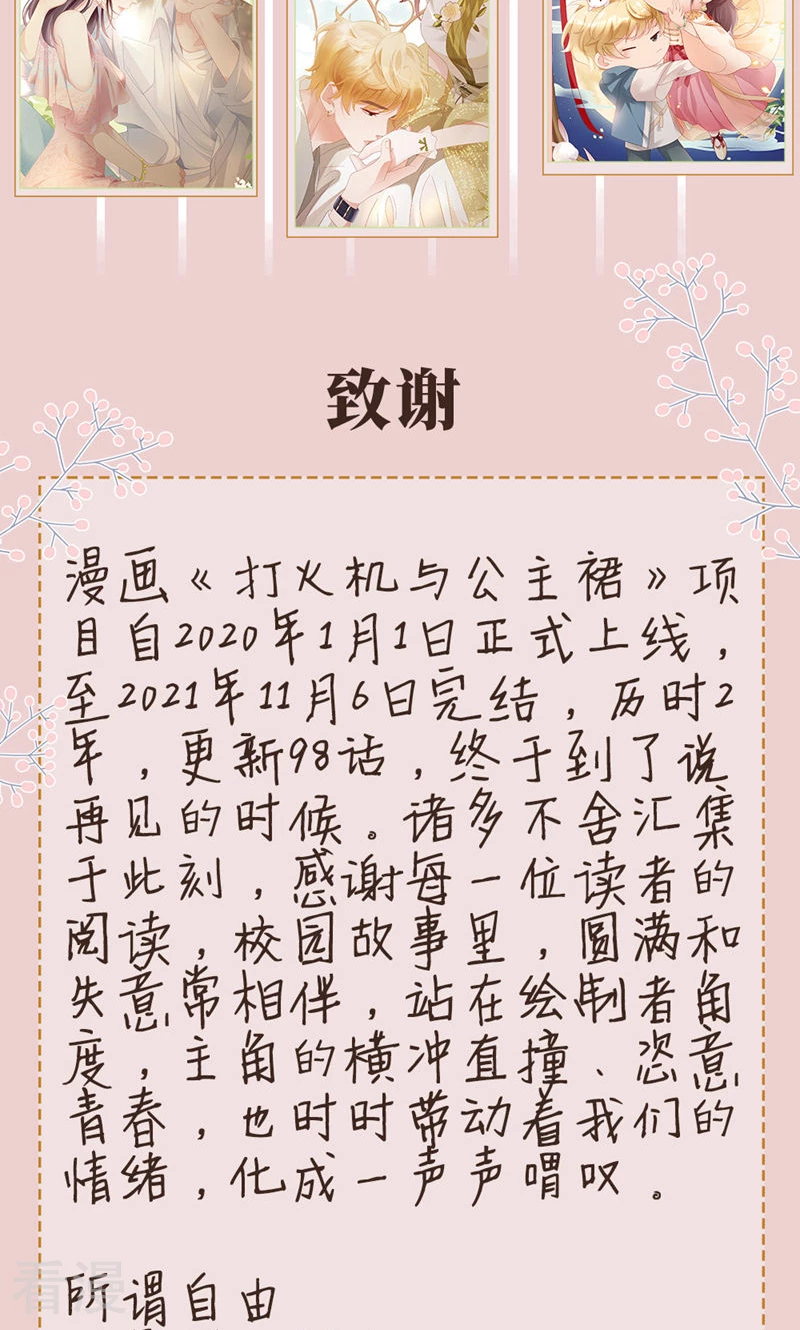 致谢
漫画《打火机与公主裙》项
目自2020年1月1日正式上线，
至2021年11月6日完结，历时2
年，更新98话，终于到了说
再见的时候。诸多不舍汇集
于此刻，感谢每一位读者的
阅读，校园故事里，圆满和
失意常相伴，站在绘制者角
度，主角的横冲直撞、恣意
青春，也时时带动着我们的
情绪，化成一声声喟叹。
所谓自由
看漫